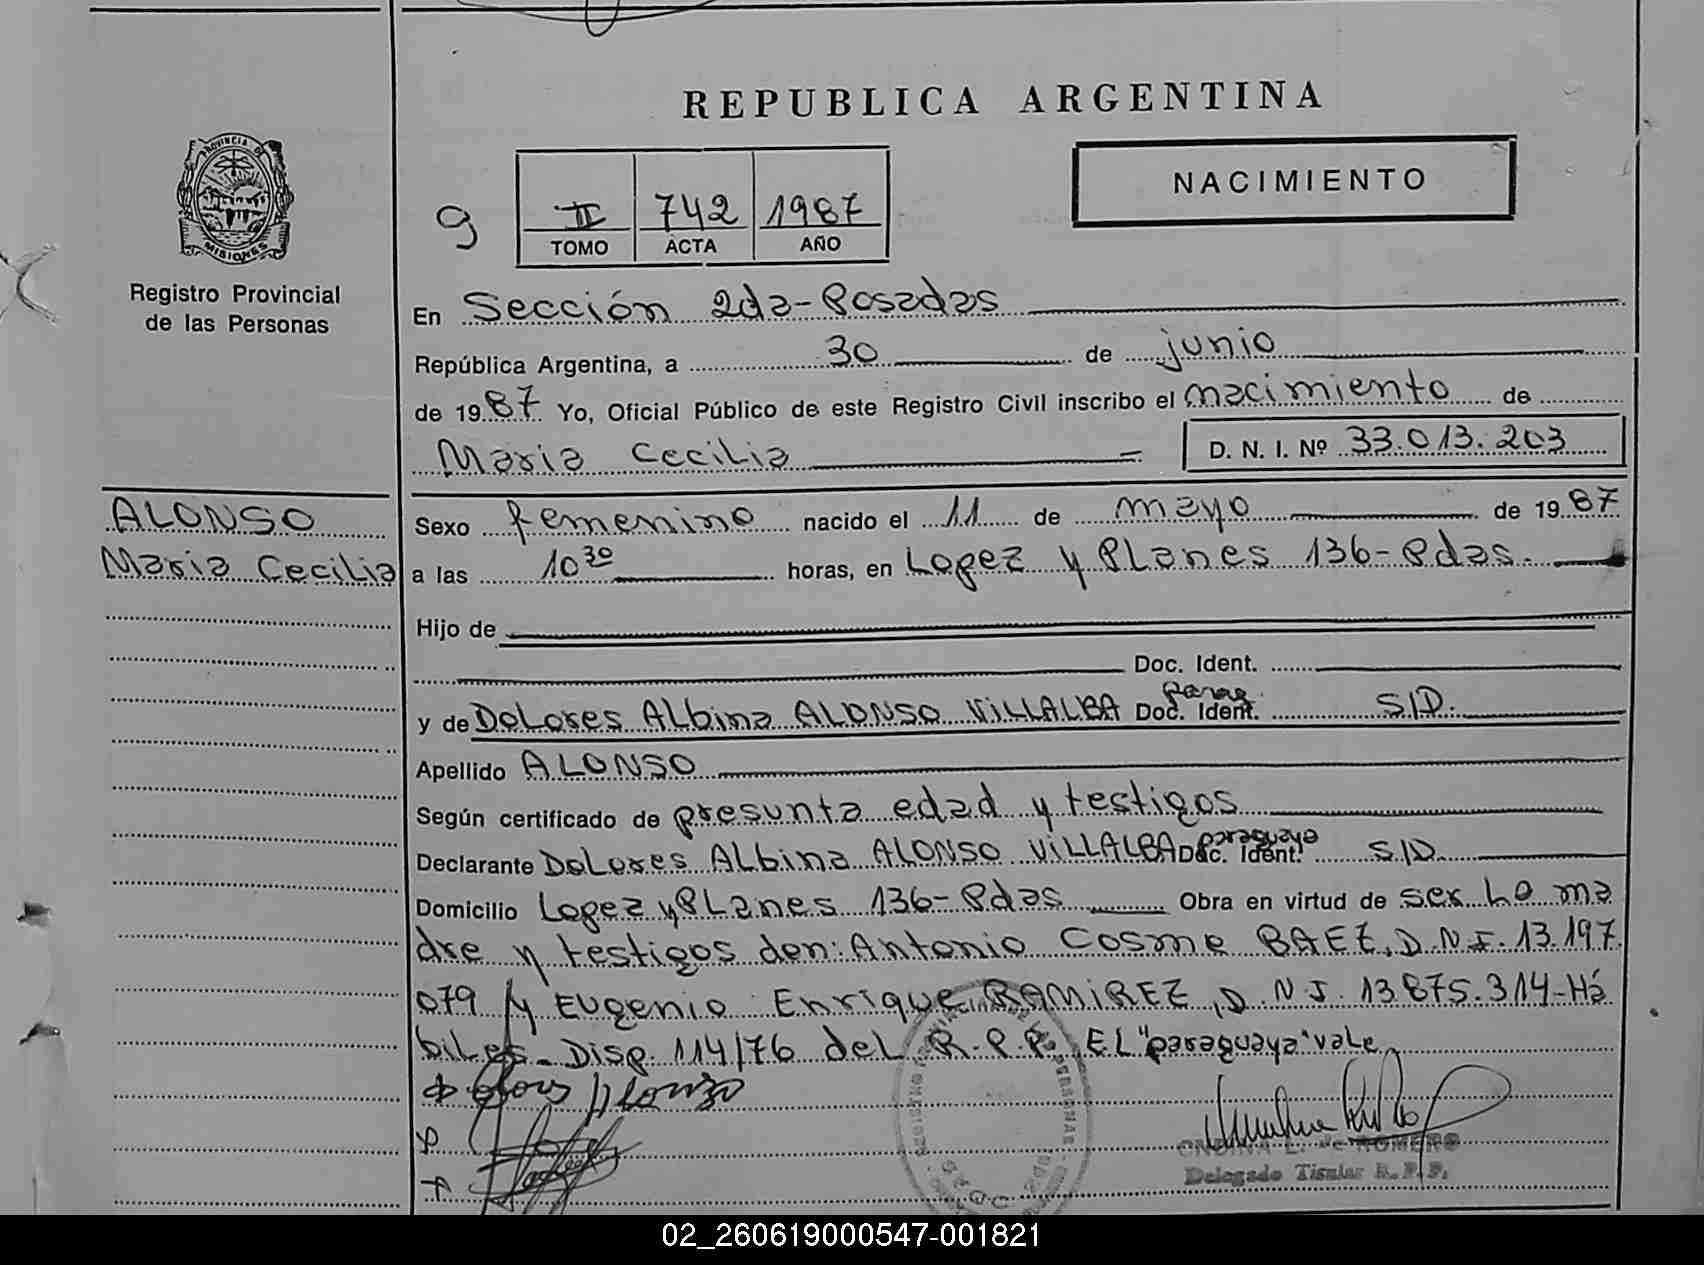 REPUBLICA ARGENTINA
PROVINCIA DE
MISIONES
Registro Provincial
de las Personas
NACIMIENTO
9 II 742 1987
TOMO ACTA AÑO
En Sección 2da-Posadas
República Argentina, a 30 de junio
de 1987 Yo, Oficial Público de este Registro Civil inscribo el nacimiento de
Maria Cecilia = D. N. I. Nº 33.013.203
ALONSO
Maria Cecilia
Sexo femenino nacido el 11 de mayo de 1987
a las 10 30 horas, en Lopez y Planes 136-Pdas.
Hijo de
Doc. Ident.
parag.
y de Dolores Albina ALONSO VILLALBA Doc. Ident. S/D.
Apellido ALONSO
Según certificado de presunta edad y testigos
paraguaya
Declarante Dolores Albina ALONSO VILLALBA Doc. Ident. S/D.
Domicilio Lopez y Planes 136-Pdas Obra en virtud de ser la ma
dre y testigos don: Antonio Cosme BAEZ, D.N.I. 13.197
079 y Eugenio Enrique RAMIREZ, D.N.I. 13.875.314-Há
biles- Disp. 114/76 del R.P.P. EL "paraguaya" vale
L. de ROMERO
Delegado Titular R.P.P.
02_260619000547-001821